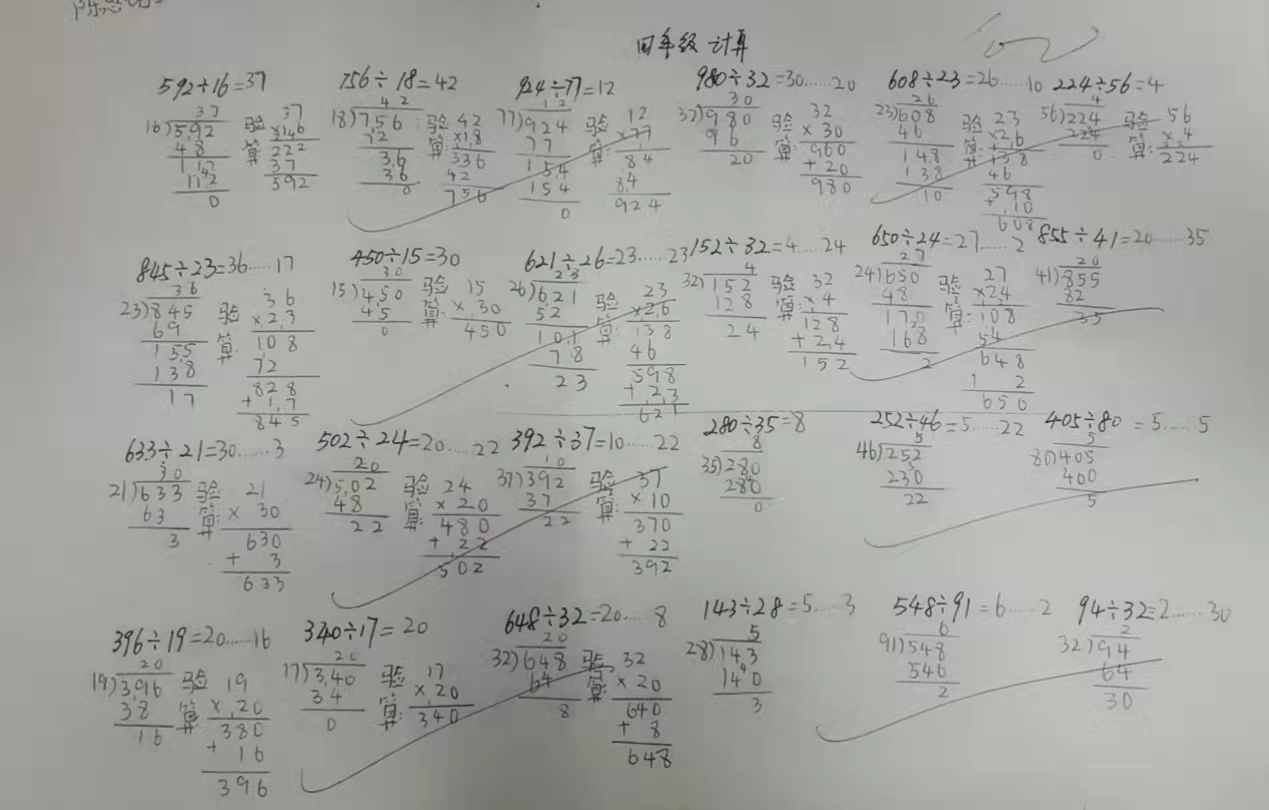 四年级 计算
100
592÷16=37 756÷18=42 924÷77=12 980÷32=30……20 608÷23=26……10 224÷56=4
37 42 12 30 26 4
16)592 验算: 37 18)756 验算: 42 77)924 验算: 12 32)980 验算: 32 23)608 验算: 23 56)224 验算: 56
48 ×16 72 ×18 77 ×77 96 ×30 46 ×26 224 ×4
112 222 36 336 154 84 20 960 148 138 0 224
112 37 36 42 154 84 +20 138 46
0 592 0 756 0 924 980 10 598
+10
608
845÷23=36……17 450÷15=30 621÷26=23……23 152÷32=4……24 650÷24=27……2 855÷41=20……35
36 30 23 4 27 20
23)845 验算: 36 15)450 验算: 15 26)621 验算: 23 32)152 验算: 32 24)650 验算: 27 41)855
69 ×23 45 ×30 52 ×26 128 ×4 48 ×24 82
155 108 0 450 101 138 24 128 170 108 35
138 72 78 46 +24 168 54
17 828 23 598 152 2 648
+17 +23 2
845 621 650
633÷21=30……3 502÷24=20……22 392÷37=10……22 280÷35=8 252÷46=5……22 405÷80=5……5
30 20 10 8 5 5
21)633 验算: 21 24)502 验算: 24 37)392 验算: 37 35)280 46)252 80)405
63 ×30 48 ×20 37 ×10 280 230 400
3 630 22 480 22 370 0 22 5
+3 +22 +22
633 502 392
396÷19=20……16 340÷17=20 648÷32=20……8 143÷28=5……3 548÷91=6……2 94÷32=2……30
20 20 20 5 6 2
19)396 验算: 19 17)340 验算: 17 32)648 验算: 32 28)143 91)548 32)94
38 ×20 34 ×20 64 ×20 140 546 64
16 380 0 340 8 640 3 2 30
+16 +8
396 648